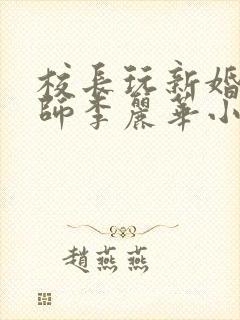 校長玩新婚
師李麗華小
趙燕燕